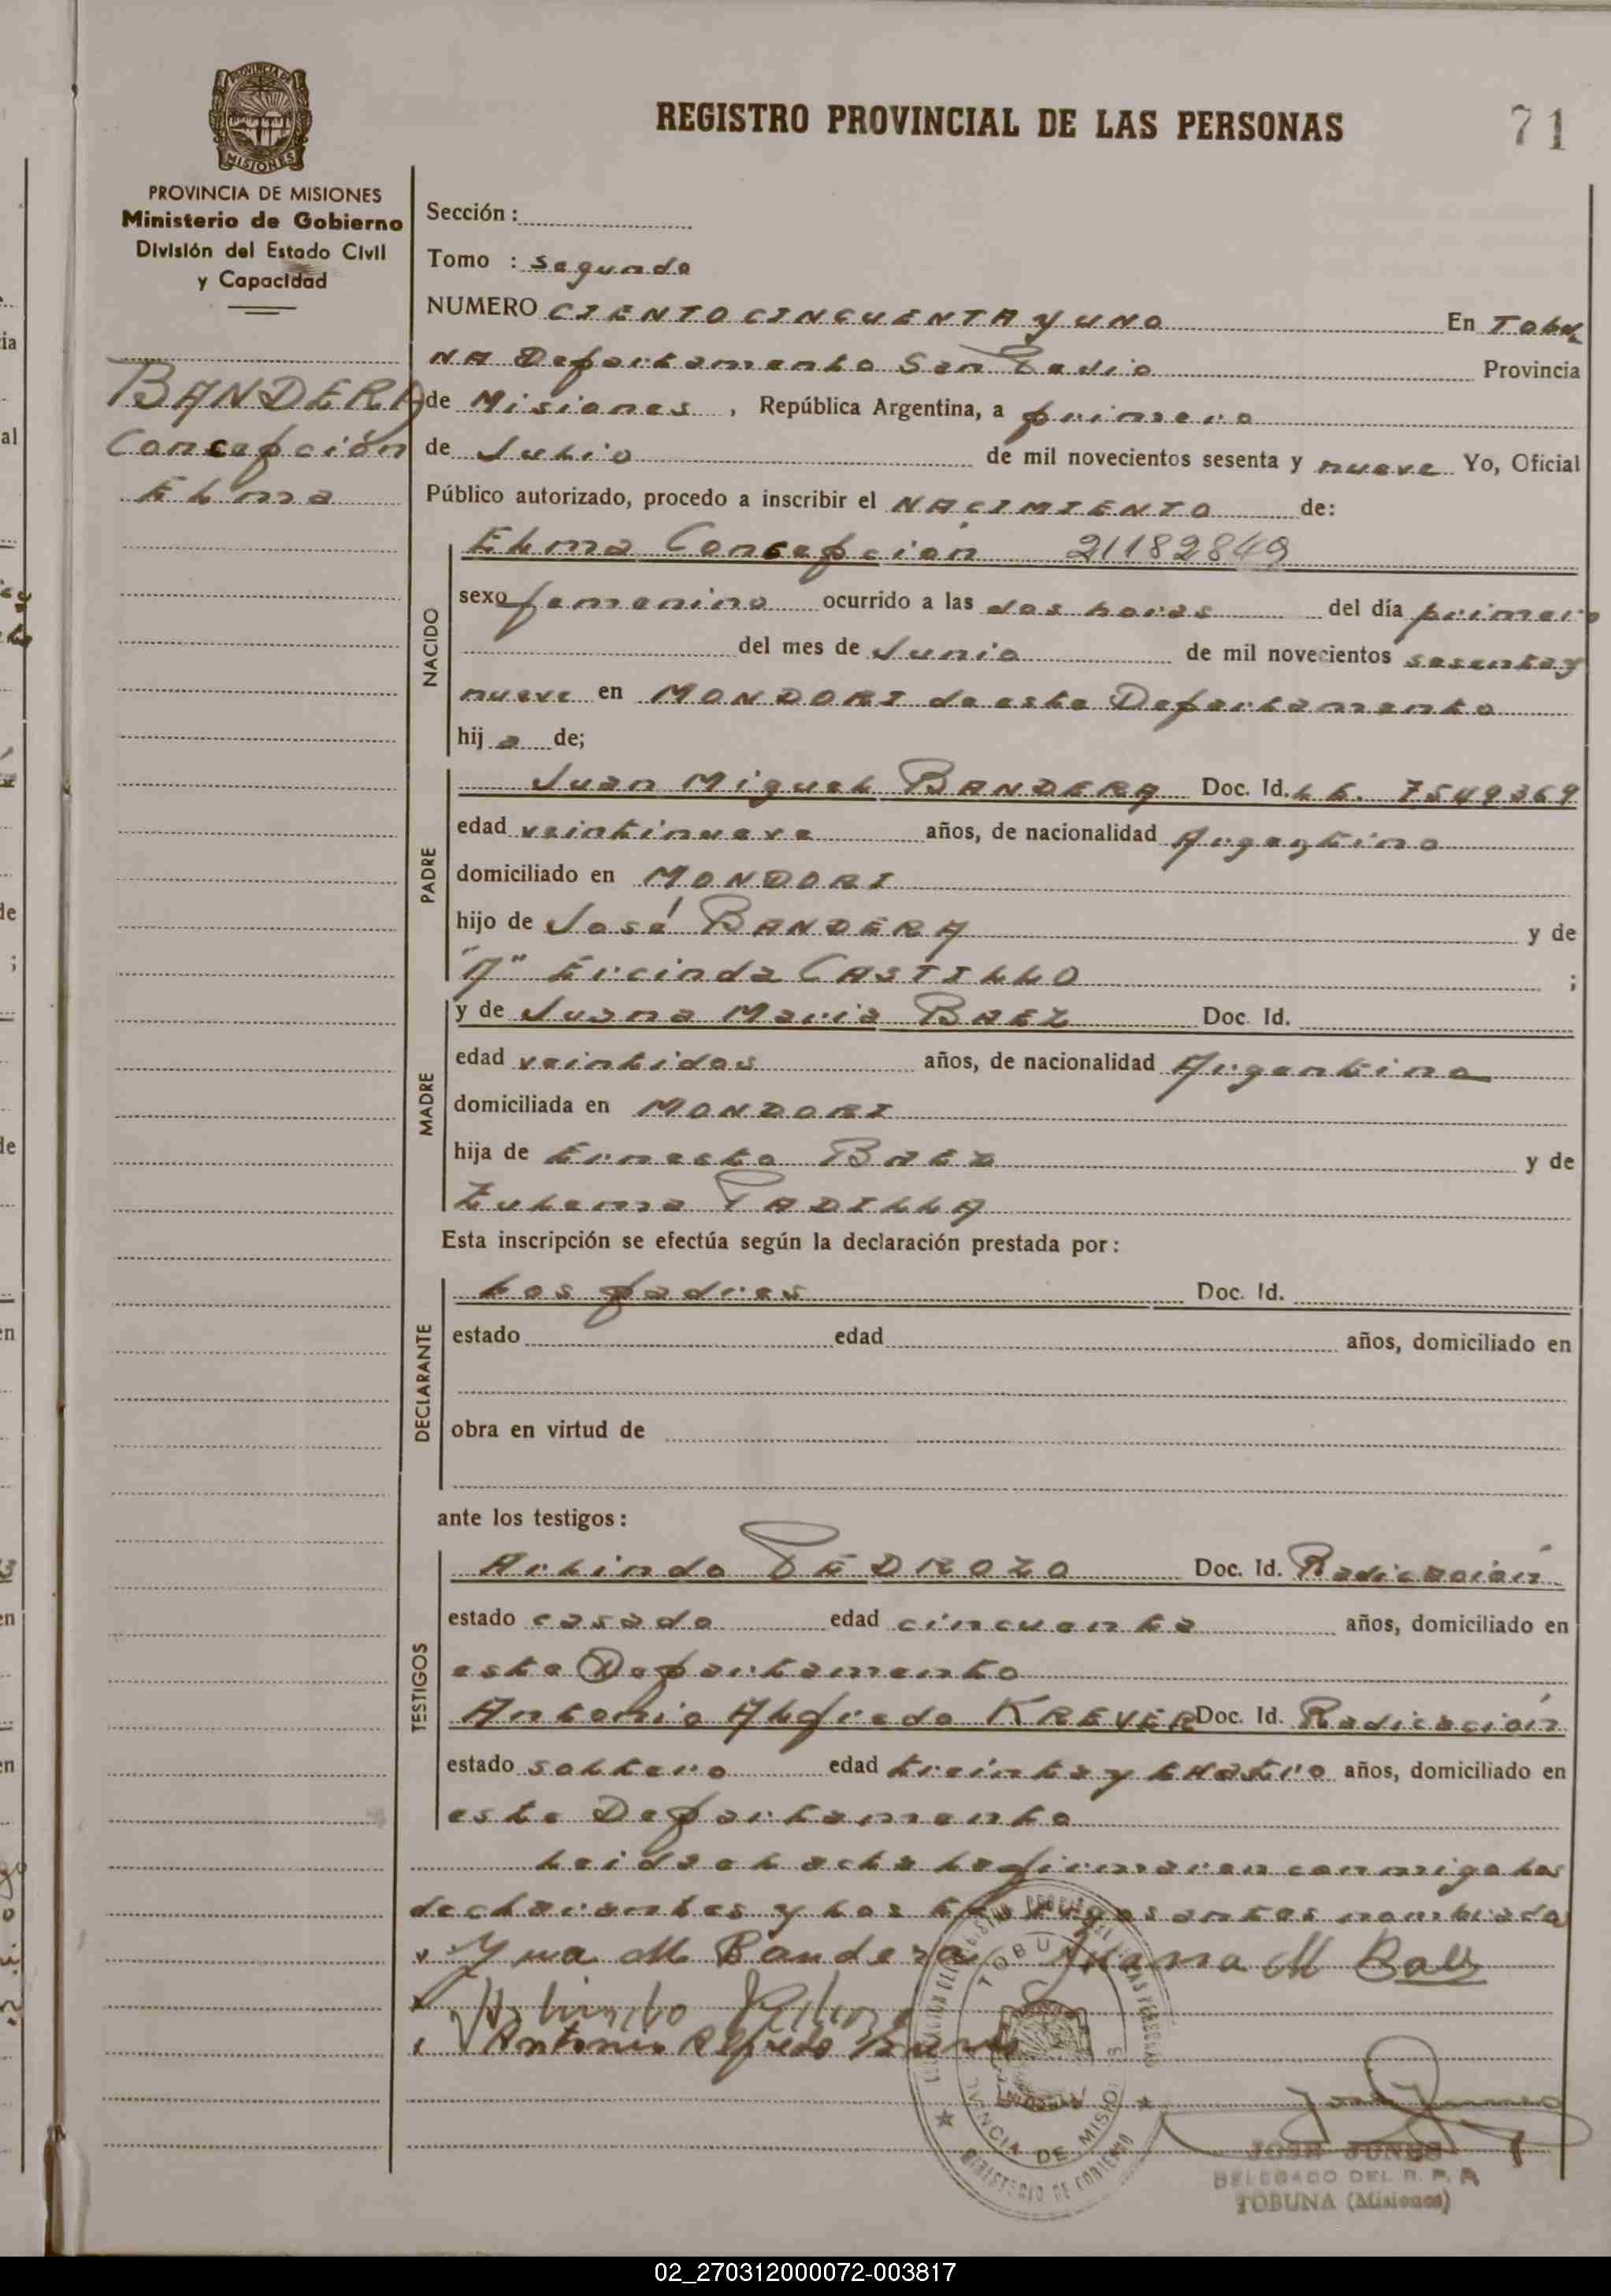 PROVINCIA DE
MISIONES
REGISTRO PROVINCIAL DE LAS PERSONAS
71
PROVINCIA DE MISIONES
Ministerio de Gobierno
División del Estado Civil
y Capacidad
BANDERA
Concepción
Elma
Sección :
Tomo : Segundo
NUMERO CIENTO CINCUENTA y UNO En TOBU
NA Departamento San Pedro Provincia
de Misiones , República Argentina, a primero
de Julio de mil novecientos sesenta y nueve Yo, Oficial
Público autorizado, procedo a inscribir el NACIMIENTO de:
NACIDO
Elma Concepción 21182849
sexo femenino ocurrido a las dos horas del día primero
del mes de Junio de mil novecientos sesenta y
nueve en MONDORI de este Departamento
hij a de;
PADRE
Juan Miguel BANDERA Doc. Id. L E. 7549369
edad veintinueve años, de nacionalidad Argentino
domiciliado en MONDORI
hijo de José BANDERA y de
"A" Ercinda CASTILLO ;
MADRE
y de Juana Maria BAEZ Doc. Id.
edad veintidos años, de nacionalidad Argentina
domiciliada en MONDORI
hija de Ernesto BAEZ y de
Zulema PADILLA
Esta inscripción se efectúa según la declaración prestada por :
DECLARANTE
Los padres Doc. Id.
estado edad años, domiciliado en
obra en virtud de
ante los testigos :
TESTIGOS
Arlindo PEDROZO Doc. Id. Radicación
estado casado edad cincuenta años, domiciliado en
este Departamento
Antonio Alfredo KREVER Doc. Id. Radicación
estado soltero edad treinta y cuatro años, domiciliado en
este Departamento
Leida el acta la firmaron conmigo los
declarantes y los testigos antes nombrados
Jua M Bandera Juana M Baez
Antonio Alfredo
TOBUNA
PROVINCIA DE MISIONES
MINISTERIO DE GOBIERNO
JOSE JUNES
DELEGADO DEL R. P. P.
TOBUNA (Misiones)
02_270312000072-003817